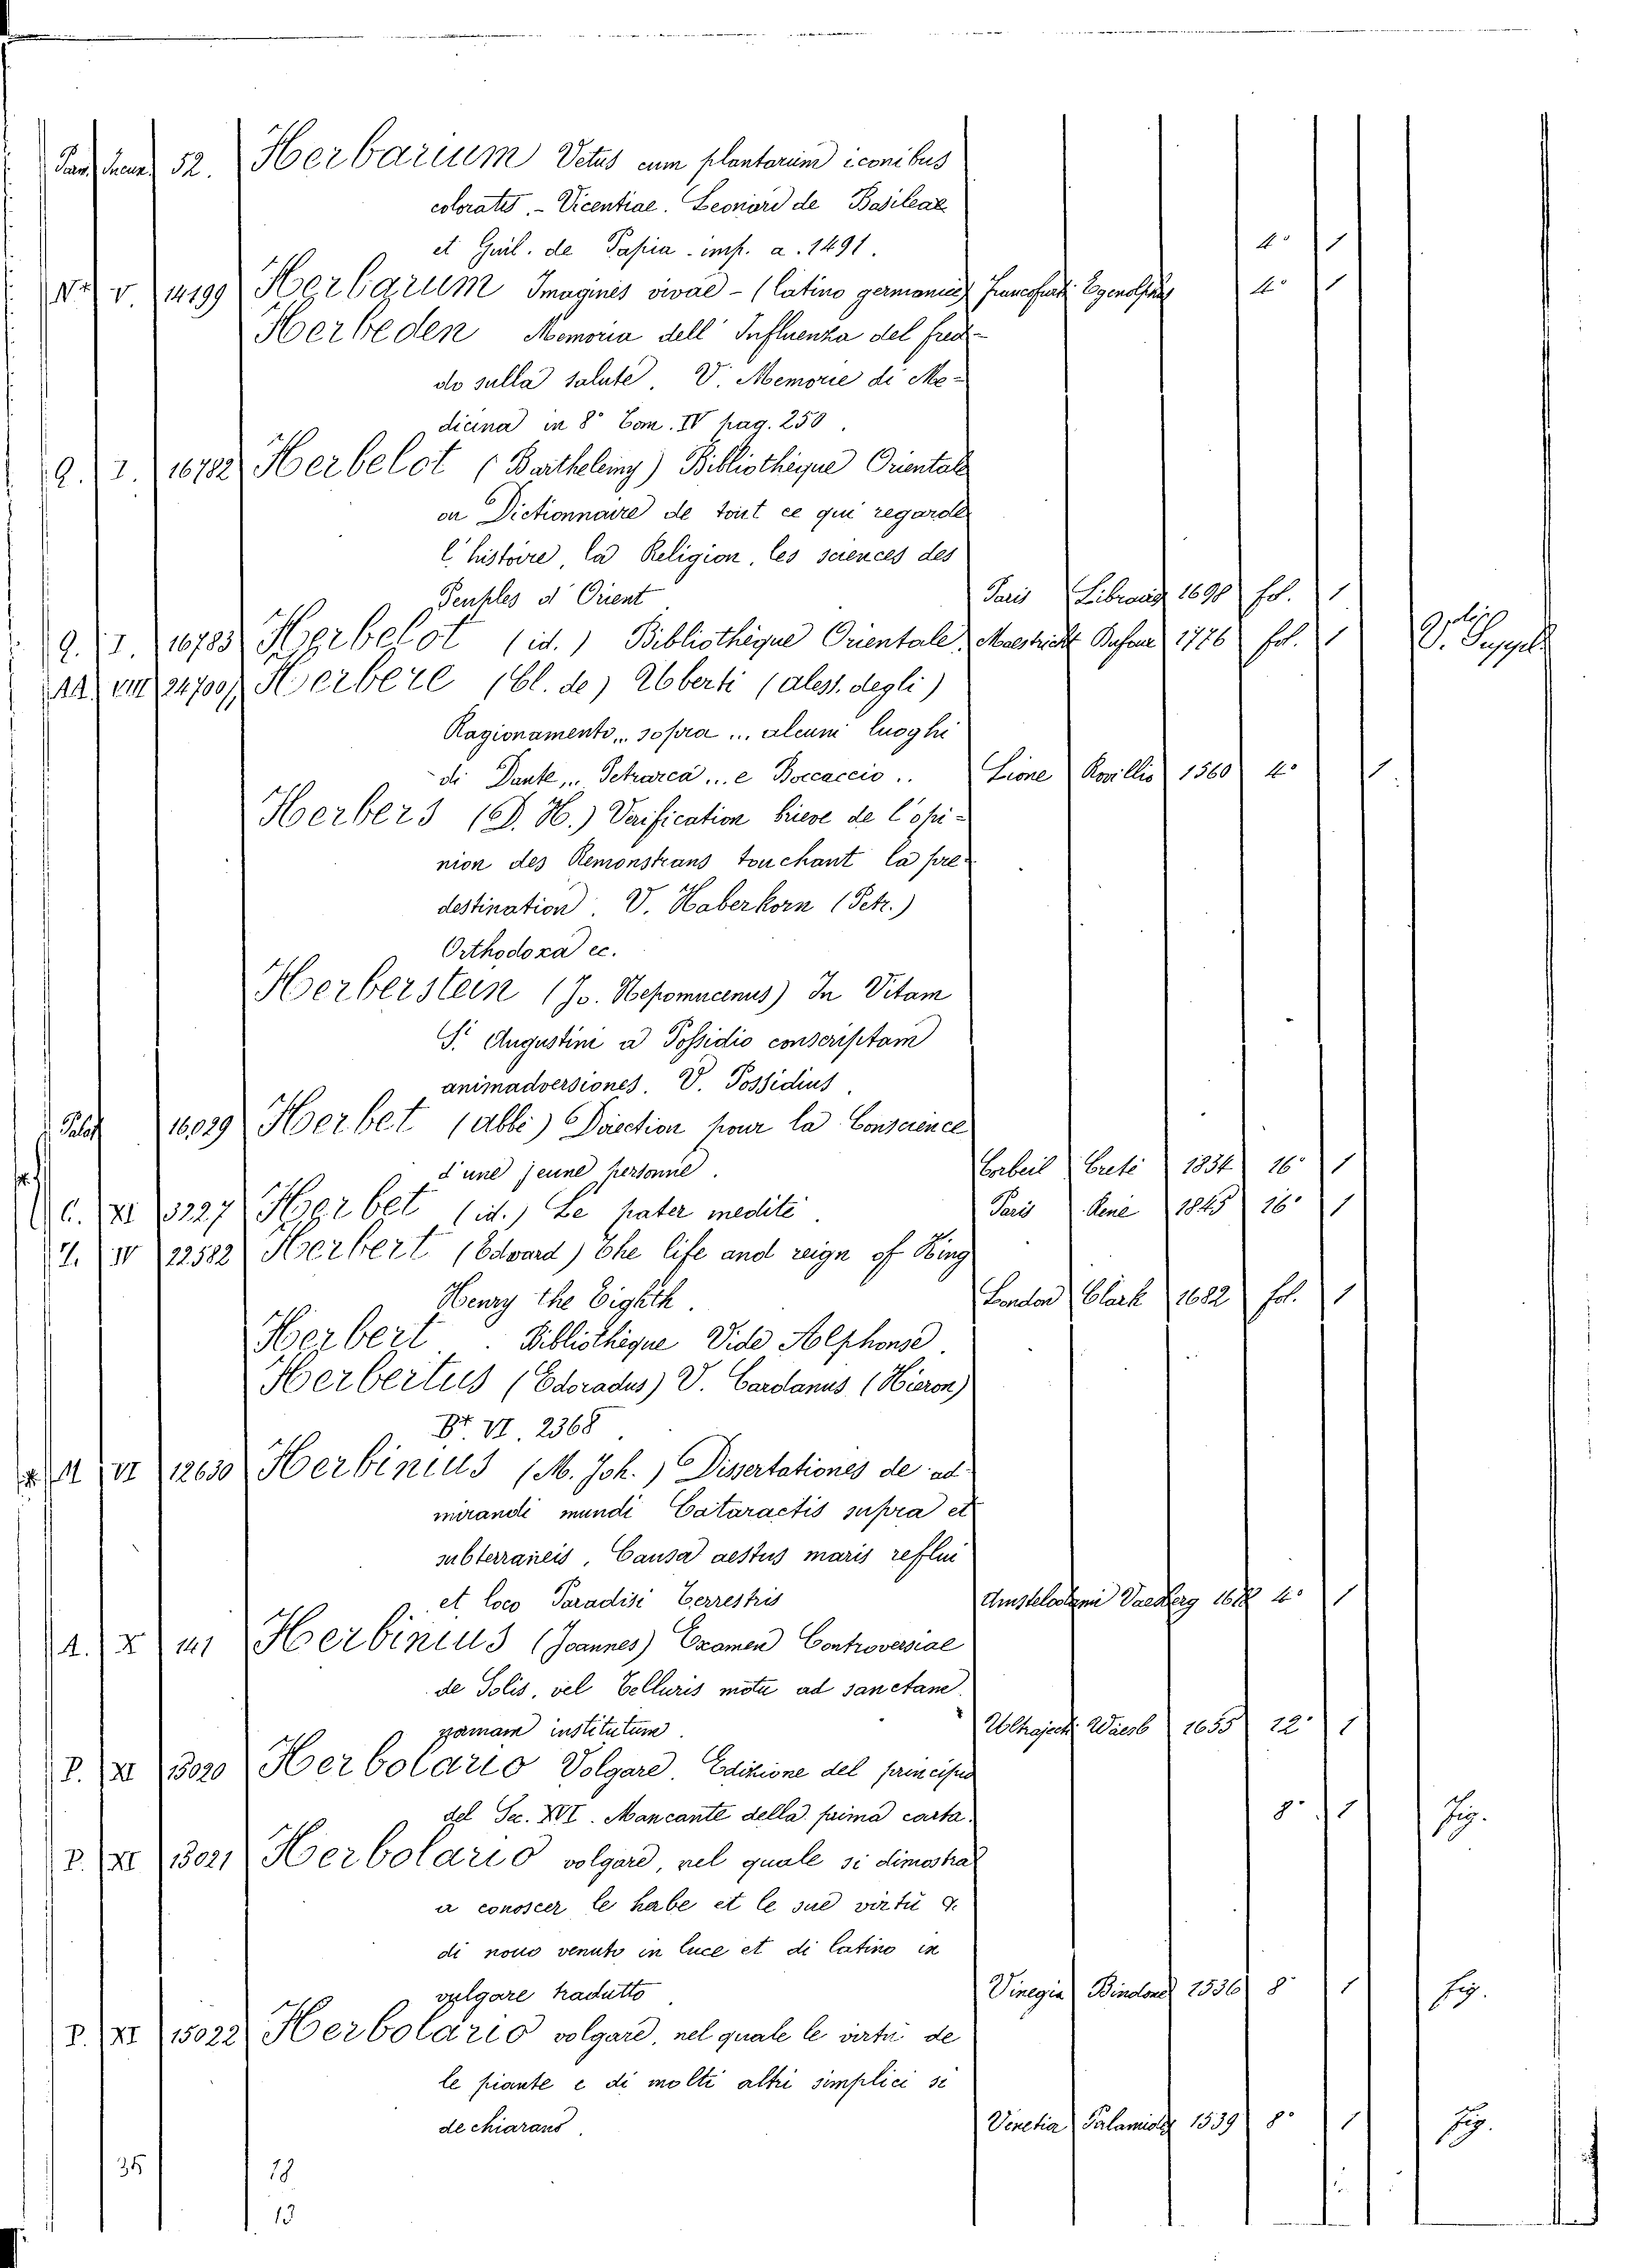 52. Herbarium Vetus cum plantarum iconibus
coloratis. - Vicentiae. Leonard de Basileae
et Guil. de Papia. imp. a. 1491. 4° 1
V 14199 Herbarum Imagines vivae - (latino germanice) Francofurti Egenolphus 4° 1
Herbeden Memoria dell' Influenza del fred-
do sulla salute. V. Memorie di Me-
dicina in 8° Tom. IV pag. 250.
Q. I. 16782 Herbelot (Barthelemy) Bibliothèque Orientale
ou Dictionnaire de tout ce qui regarde
l'histoire, la Religion, les sciences des
Peuples d'Orient Paris 1698 fol. 1
Q. I. 16783 Herbelot (id.) Bibliothèque Orientale, Maestricht Dufour 1776 fol. 1 V. Suppl.
AA. VIII 24700 Herbere (Cl. de) Alberti (aless. degli)
Ragionamento... sopra... alcuni luoghi
di Dante... Petrarca... e Boccaccio.. Lione Rovillio 1560 4° 1
Herbers (D. H.) Verification brieve de l'opi-
nion des Remonstrans touchant la pre-
destination. V. Haberkorn (Petr.)
Orthodoxa ec.
Herberstein (Jo. Nepomucenus) In Vitam
S. Augustini a Possidio conscriptam
animadversiones. V. Possidius.
16029 Herbet (abbé) Direction pour la Conscience
d'une jeune personne. Corbeil Creté 1834 16° 1
C. XI 13227 Herbet (id.) Le pater medité. Paris René 1845 16° 1
T. IV 22582 Herbert (Edward) The life and reign of King
Henry the Eighth. London Clark 1682 fol. 1
Herbert.. Bibliothèque Vide Alphonse.
Herbertus (Edoradus) V. Cardanus (Hieron)
VI. 2368.
M VI 12630 Herbinius (M. Joh.) Dissertationes de ad-
mirandi mundi Cataractis supra et
subterraneis. Causa aestus maris reflui
et loco Paradisi Terrestris Amstelodami 4° 1
A. X 141 Herbinius (Joannes) Examen Controversiae
de Solis, vel Telluris motu ad sanctam
institutum. Ultrajecti Waesb 1655 12° 1
P. XI 15020 Herbolario Volgare. Edizione del principio
del Sec. XVI. Mancante della prima carta. 8° 1 fig.
P. XI 15021 Herbolario volgare, nel quale si dimostra
a conoscer le herbe et le sue virtù &
di nouo venuto in luce et di latino in
vulgare tradutto Vinegia Bindoni 1536 8° 1 fig.
P. XI 15022 Herbolario volgare, nel quale le virtù de
le piante e di molti altri simplici si
dechiarano. Venetia 1539 8° 1 fig.
35 18
13